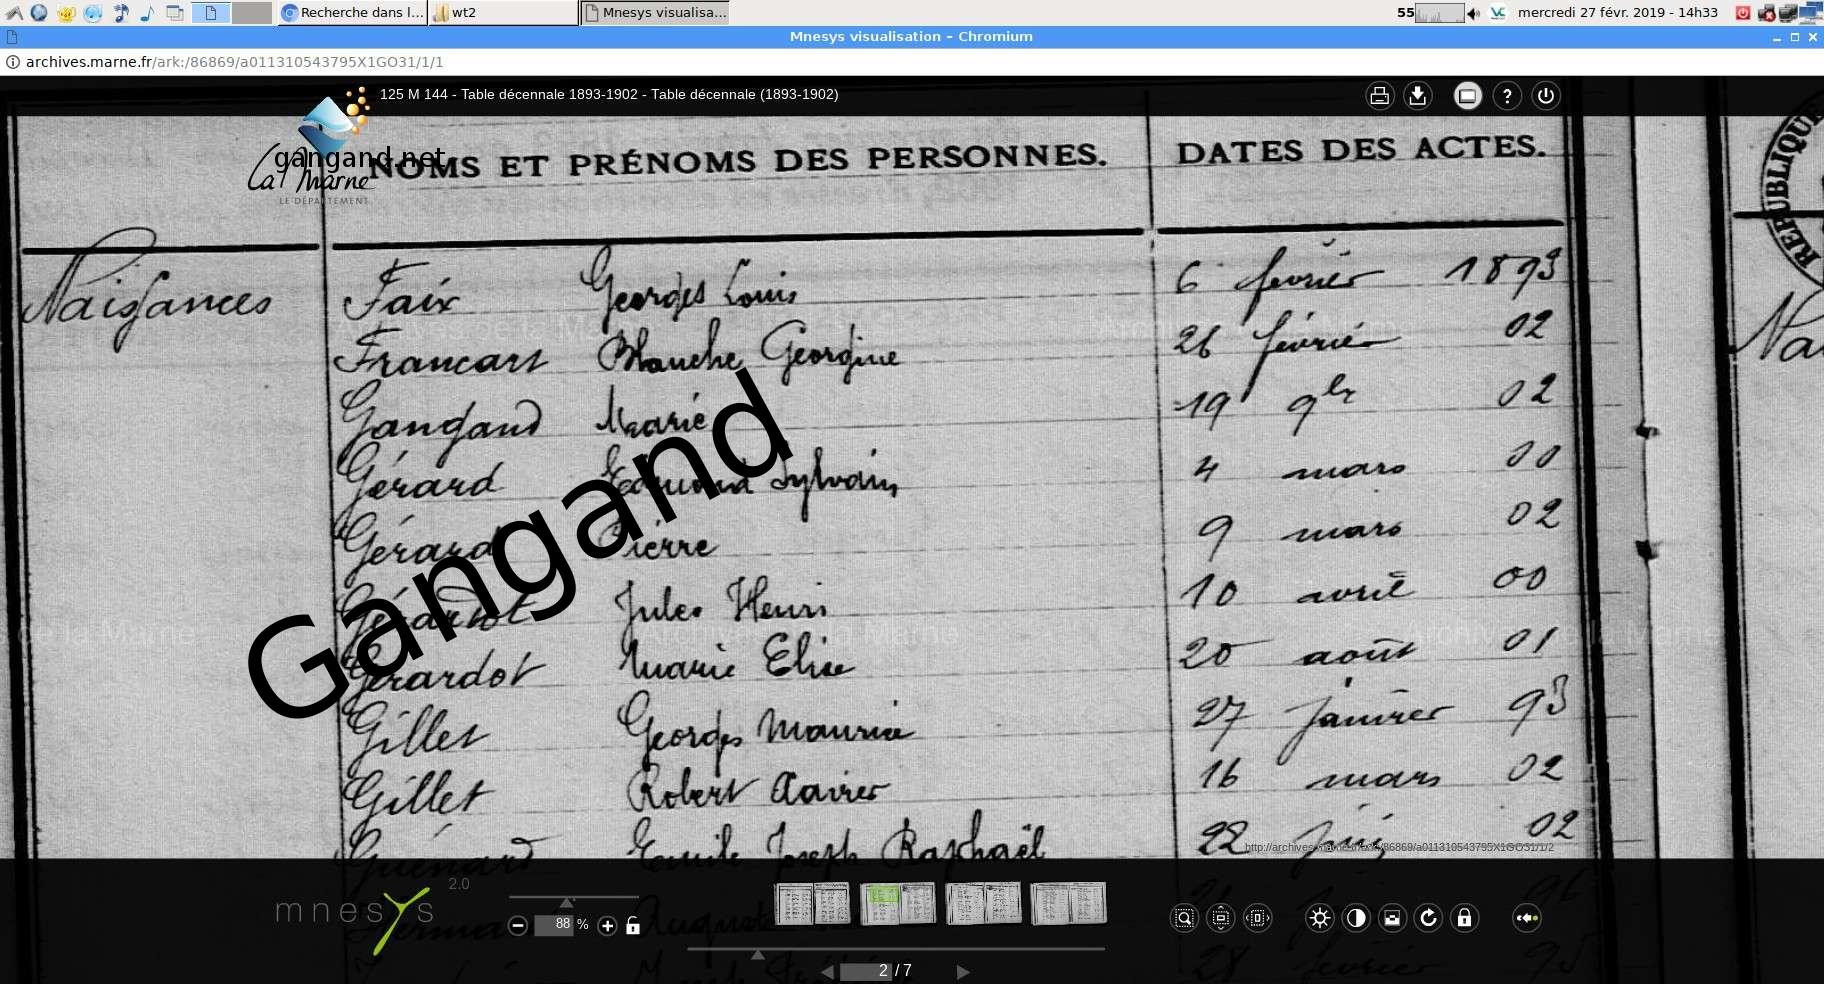 Recherche dans l... wt2 Mnesys visualisa... 55 mercredi 27 févr. 2019 - 14h33
Mnesys visualisation – Chromium
archives.marne.fr/ark:/86869/a011310543795X1GO31/1/1
125 M 144 - Table décennale 1893-1902 - Table décennale (1893-1902)
gangand.net
La Marne
LE DÉPARTEMENT
NOMS ET PRÉNOMS DES PERSONNES. DATES DES ACTES.
RÉPUBLIQUE
Naissances Faix Georges Louis 6 février 1893
Francart Blanche Georgine 26 février 02
Gangand Marie 19 9br 02
Gérard Edmond Sylvain 4 mars 00
Gérard Pierre 9 mars 02
Gérardot Jules Henri 10 avril 00
Gérardot Marie Elise 20 août 01
Gillet Georges Maurice 27 janvier 93
Gillet Robert Xavier 16 mars 02
Guénard Emile Joseph Raphaël 22 02
Gangand
http://archives.marne.fr/ark:/86869/a011310543795X1GO31/1/2
mnesys 2.0
88 %
2 / 7